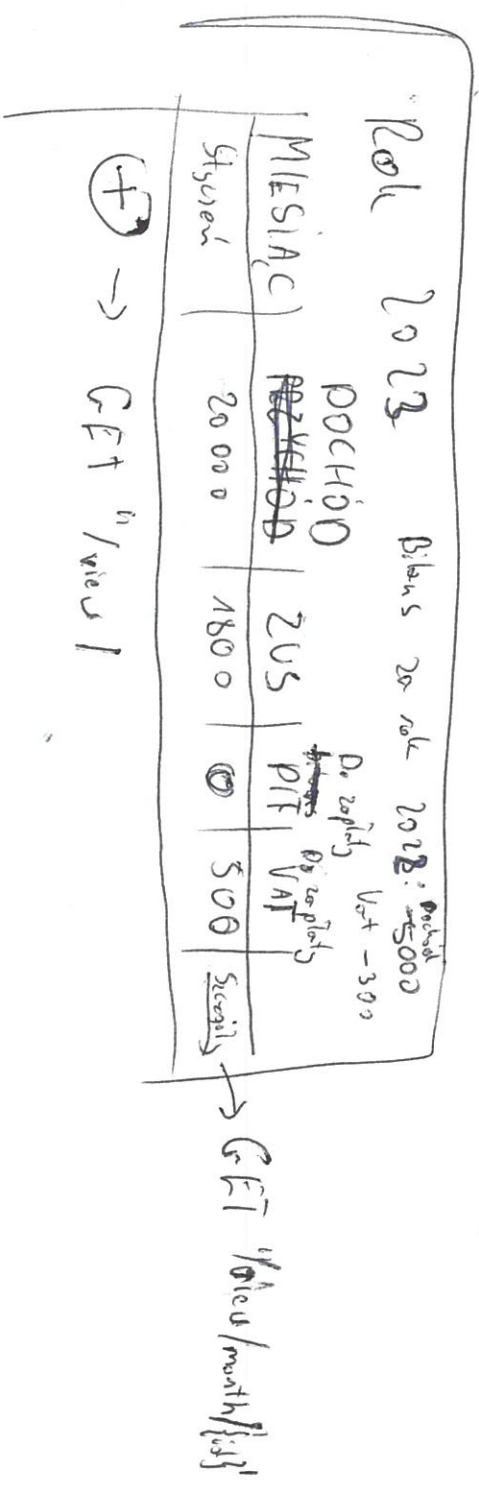 Rok 2023 Bilans za rok 2022: Dochód -5000
Vat -300
MIESIĄC DOCHÓD ZUS Do zapłaty PIT Do zapłaty VAT
Styczeń 20 000 1800 0 500 Szczegóły → GET "/view/month/{id}"
+ → GET "/view/